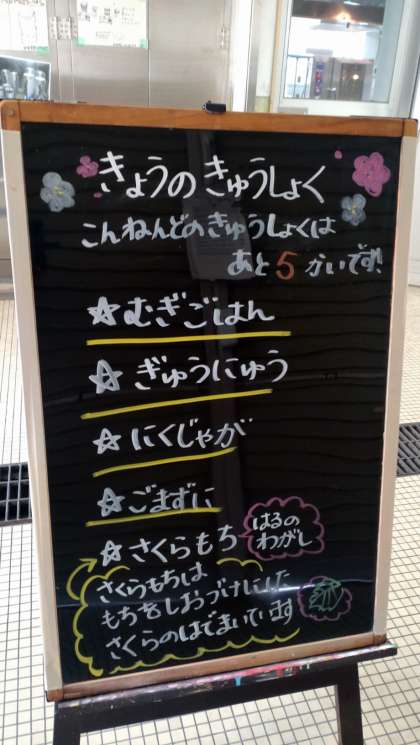 きょうのきゅうしょく
こんねんどのきゅうしょくは
あと5かいです!
☆むぎごはん
☆ぎゅうにゅう
☆にくじゃが
☆ごまずに
☆さくらもち
はるの
わがし
さくらもちは
もちをしおづけにした
さくらのはでまいています